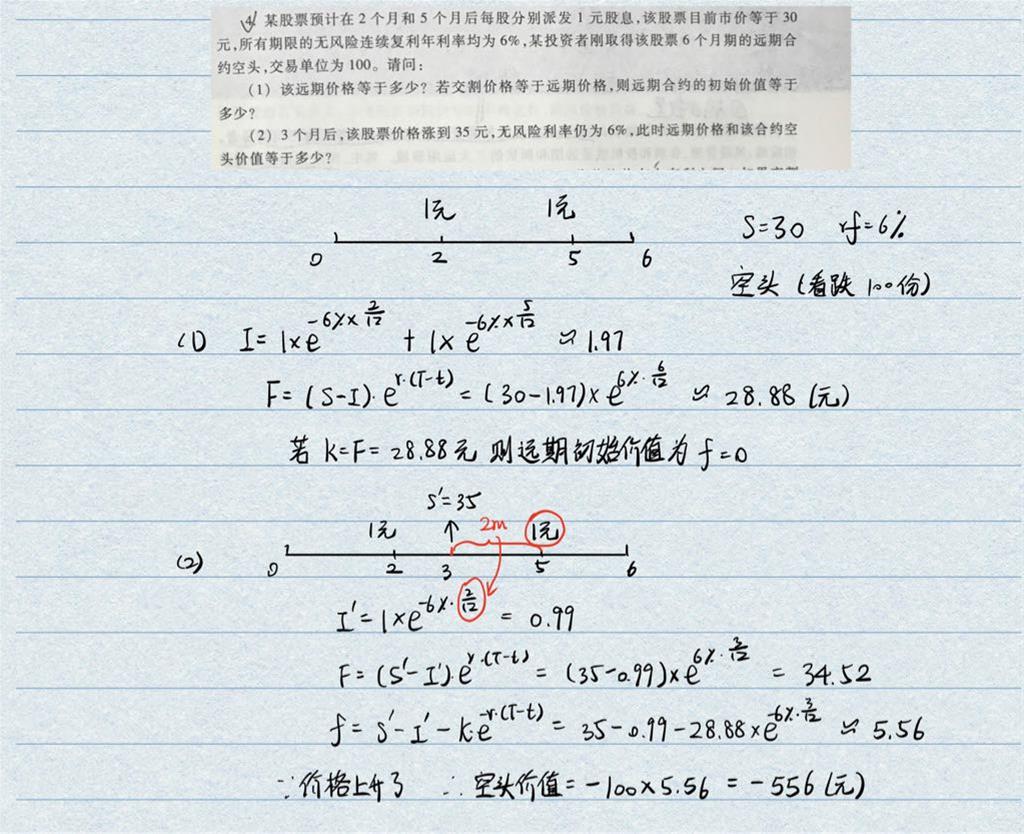 4. 某股票预计在 2 个月和 5 个月后每股分别派发 1 元股息,该股票目前市价等于 30
元,所有期限的无风险连续复利年利率均为 6%,某投资者刚取得该股票 6 个月期的远期合
约空头,交易单位为 100。请问:
(1) 该远期价格等于多少? 若交割价格等于远期价格,则远期合约的初始价值等于
多少?
(2) 3 个月后,该股票价格涨到 35 元,无风险利率仍为 6%,此时远期价格和该合约空
头价值等于多少?
1元 1元
0 2 5 6
S=30 rf=6%
空头 (看跌 100份)
(1) I= 1×e^{-6%×2/12} + 1× e^{-6%×5/12} ≈ 1.97
F= (S-I)·e^{r·(T-t)} = (30-1.97)×e^{6%·6/12} ≈ 28.88 (元)
若 K=F= 28.88元 则远期初始价值为 f=0
S'=35
1元 ↑ 2m 1元
(2) 0 2 3 5 6
I'= 1×e^{-6%·2/12} = 0.99
F= (S'-I')·e^{r·(T-t)} = (35-0.99)×e^{6%·3/12} = 34.52
f= S'-I'-K·e^{-r·(T-t)} = 35-0.99-28.88×e^{-6%·3/12} ≈ 5.56
∵价格上升了 ∴空头价值= -100×5.56 = -556 (元)